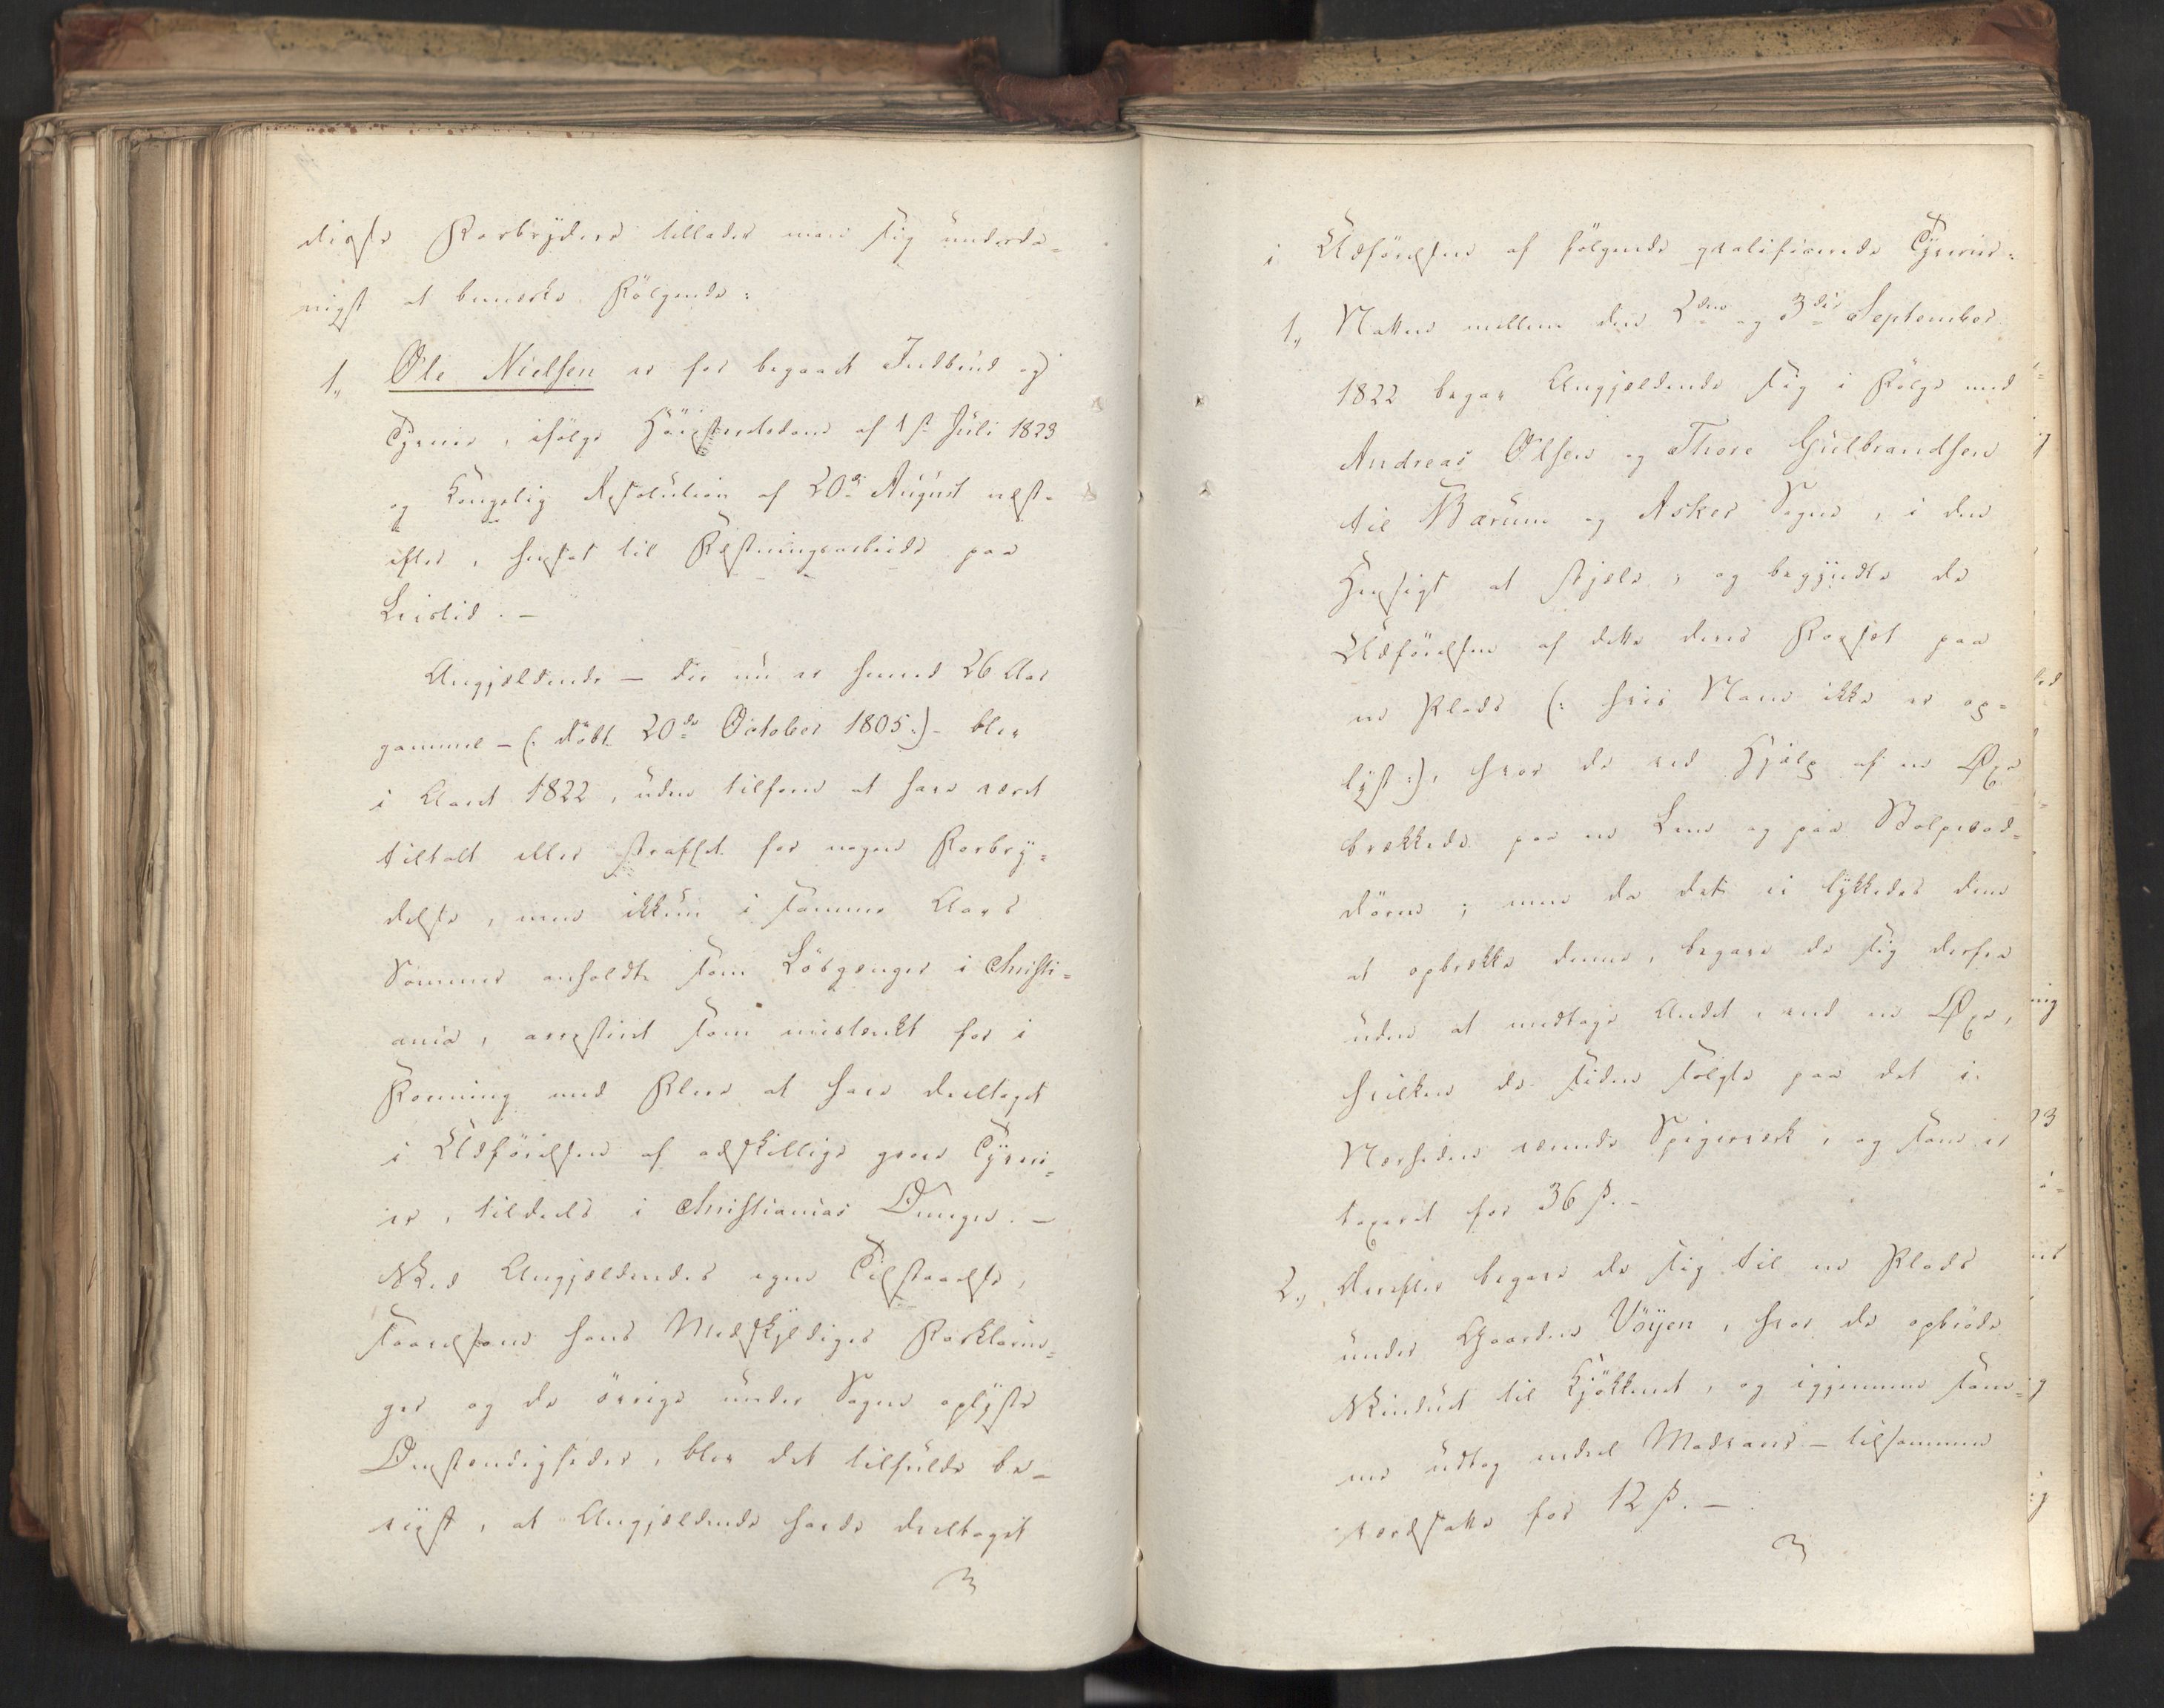 disse Forbrydere tillader man sig underda=
nigst at bemærke Følgende:
1,, Ole Nielsen er for begaaet Indbrud og
Tyverie, ifølge Høiesteretsdom af 1ste Juli 1823
og Kongelig Resolution af 20de August næst-
efter, hensat til Fæstningsarbeide paa
Livstid. —
Angjeldende — der nu er henved 26 Aar
gammel — (: døbt 20de October 1805 :) — blev
i Aaret 1822, uden tilforn at have været
tiltalt eller straffet for nogen Forbry=
delse, men ikkun i samme Aars
Sommer anholdt som Løsgænger i Christi=
ania, arresteret som mistænkt for i
Forening med Flere at have deeltaget
i Udførelsen af adskillige grove Tyveri=
er, tildeels i Christianias Omegn. —
Ved Angjeldendes egen Tilstaaelse,
saavelsom hans Medskyldiges Forklarin=
ger og de øvrige under Sagen oplyste
Omstændigheder, blev det tilfulde be=
viist, at Angjeldende havde deeltaget
i Udførelsen af følgende qvalificerede Tyverier:
1,, Natten mellem den 2den og 3die September
1822 begav Angjeldende sig i Følge med
Andreas Olsen og Thore Gulbrandsen
til Bærum og Asker Sogne, i den
Hensigt at stjæle, og begyndte de
Udførelsen af dette deres Forsæt paa
en Plads (: hvis Navn ikke er op=
lyst :), hvor de ved Hjelp af en Øxe
brækkede paa en Laas og paa Stolpebod=
døren; men da det ei lykkedes dem
at opbrække denne, begave de sig derfra
uden at medtage Andet, end en Øxe,
hvilken de siden solgte paa det i
Nærheden værende Spigerverk, og som er
taxeret for 36 ß. —
2,, Derefter begave de sig til en Plads
under Gaarden Vøyen, hvor de opbrøde
Vinduet til Kjøkkenet, og igjennem sam=
me udtog endeel Madvare — tilsammen
værdsatte for 12 ß. —